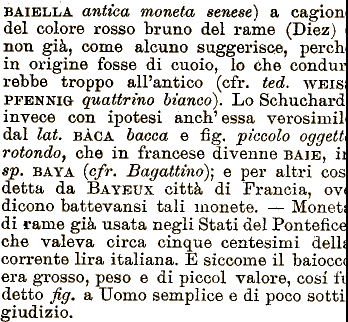 BAIELLA antica moneta senese) a cagion
del colore rosso bruno del rame (Diez)
non già, come alcuno suggerisce, perch
in origine fosse di cuoio, lo che condur
rebbe troppo all'antico (cfr. ted. WEIS
PFENNIG quattrino bianco). Lo Schuchard
invece con ipotesi anch'essa verosimil
dal lat. BÀCA bacca e fig. piccolo oggett
rotondo, che in francese divenne BAIE, i
sp. BAYA (cfr. Bagattino); e per altri cos
detta da BAYEUX città di Francia, ov
dicono battevansi tali monete. — Monet
di rame già usata negli Stati del Pontefice
che valeva circa cinque centesimi della
corrente lira italiana. E siccome il baiocc
era grosso, peso e di piccol valore, cosí fu
detto fig. a Uomo semplice e di poco sotti
giudizio.